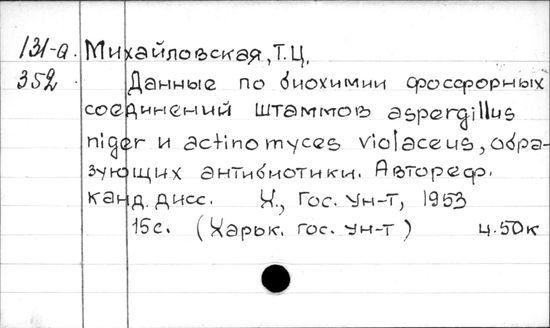 131-а. Михайловская, Т.Ц.
352. Данные по биохимии фосфорных
соединений штаммов aspergillus
niger и actinomyces violaceus, обра-
зующих антибиотики. Автореф.
канд. дисс. Х., Гос. ун-т, 1953
15с. (Харьк. гос. ун-т) ц. 50к